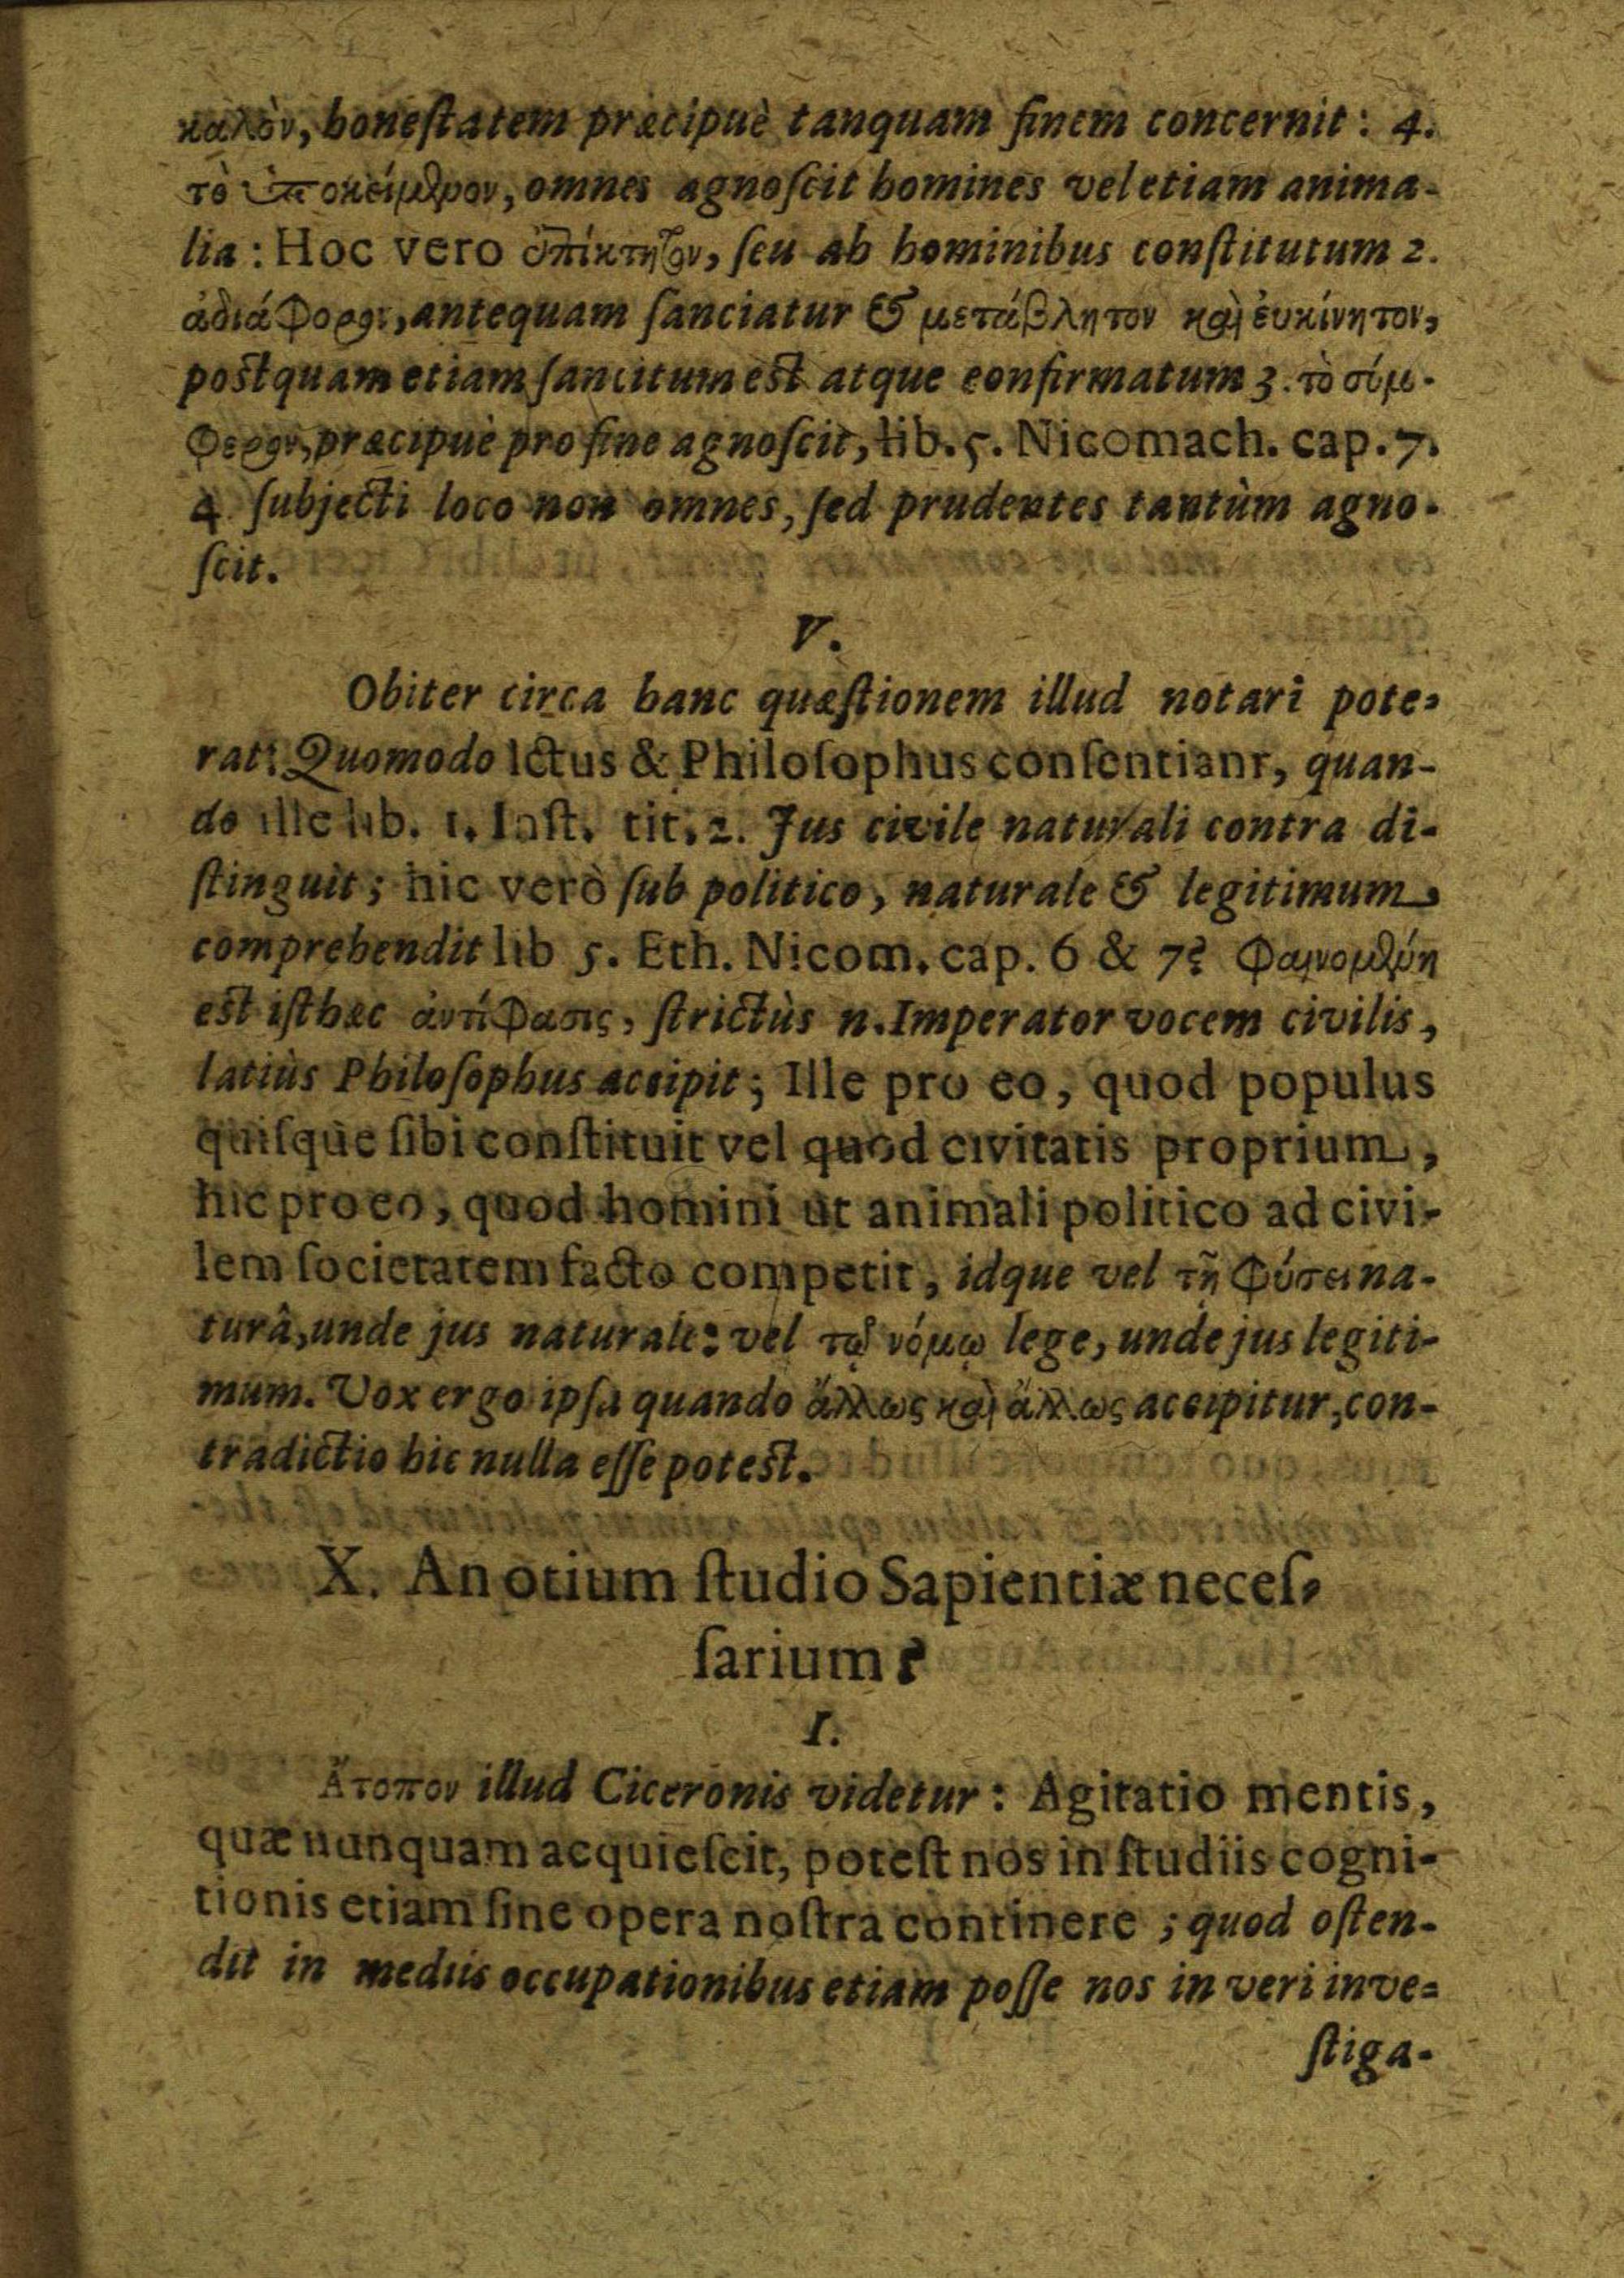 καλὸν, honeſtatem præcipuè tanquam finem concernit: 4.
τὸ ὑποκείμενον, omnes agnoſcit homines vel etiam anima-
lia: Hoc vero ἐπίκτητον, ſeu ab hominibus conſtitutum 2.
ἀδιάφορον, antequam ſanciatur & μετάβλητον καὶ ἐυκίνητον,
poſtquam etiam ſancitum eſt atque confirmatum 3. τὸ σύμ-
φερον, præcipuè pro fine agnoſcit, lib. 5. Nicomach. cap. 7.
4 ſubjecti loco non omnes, ſed prudentes tantùm agno-
ſcit.
V.
Obiter circa hanc quæſtionem illud notari pote-
rat: Quomodo Ictus & Philoſophus conſentiant, quan-
do ille lib. 1. Inſt. tit. 2. Jus civile naturali contra di-
ſtinguit; hic verò ſub politico, naturale & legitimum
comprehendit lib 5. Eth. Nicom. cap. 6 & 7? Φαινομένη
eſt iſthæc ἀντίφασις, ſtrictiùs n. Imperator vocem civilis,
latiùs Philoſophus accipit; Ille pro eo, quod populus
quiſque ſibi conſtituit vel quod civitatis proprium,
hic pro eo, quod homini ut animali politico ad civi-
lem ſocietatem facto competit, idque vel τῇ φύσει na-
turâ, unde jus naturale: vel τῷ νόμῳ lege, unde jus legiti-
mum. Vox ergo ipſa quando ἄλλως καὶ ἄλλως accipitur, con-
tradictio hic nulla eſſe poteſt.
X. An otium ſtudio Sapientiæ neceſ-
ſarium?
I.
Ἄτοπον illud Ciceronis videtur: Agitatio mentis,
quæ nunquam acquieſcit, poteſt nos in ſtudiis cogni-
tionis etiam ſine opera noſtra continere; quod oſten-
dit in mediis occupationibus etiam poſſe nos in veri inve-
ſtiga-